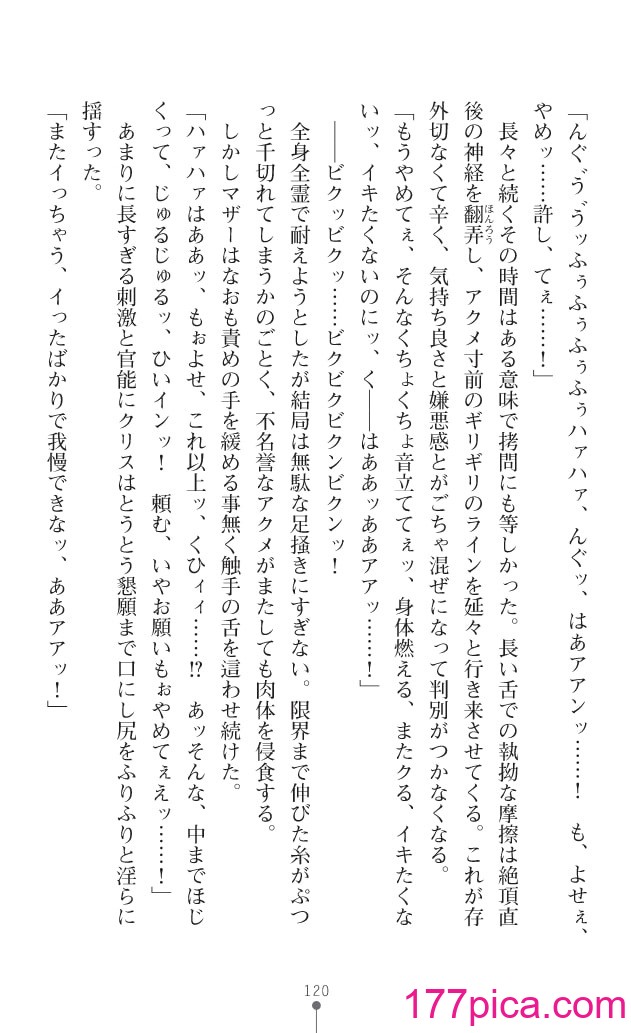 「んぐゔゔッふぅふぅふぅハァハァ、んぐッ、はあアアンッ……！　も、よせぇ、
やめッ……許し、てぇ……！」
　長々と続くその時間はある意味で拷問にも等しかった。長い舌での執拗な摩擦は絶頂直
後の神経を翻弄し、アクメ寸前のギリギリのラインを延々と行き来させてくる。これが存
ほんろう
外切なくて辛く、気持ち良さと嫌悪感とがごちゃ混ぜになって判別がつかなくなる。
「もうやめてぇ、そんなくちょくちょ音立ててぇッ、身体燃える、またクる、イキたくな
いッ、イキたくないのにッ、く――はああッああアアッ……！」
　――ビクッビクッ……ビクビクビクンビクンッ！
　全身全霊で耐えようとしたが結局は無駄な足掻きにすぎない。限界まで伸びた糸がぷつ
っと千切れてしまうかのごとく、不名誉なアクメがまたしても肉体を侵食する。
　しかしマザーはなおも責めの手を緩める事無く触手の舌を這わせ続けた。
「ハァハァはああッ、もぉよせ、これ以上ッ、くひィィ……⁉　あッそんな、中までほじ
くって、じゅるじゅるッ、ひいインッ！　頼む、いやお願いもぉやめてぇえッ……！」
　あまりに長すぎる刺激と官能にクリスはとうとう懇願まで口にし尻をふりふりと淫らに
揺すった。
「またイっちゃう、イったばかりで我慢できなッ、ああアアッ！」
120
177pica.com